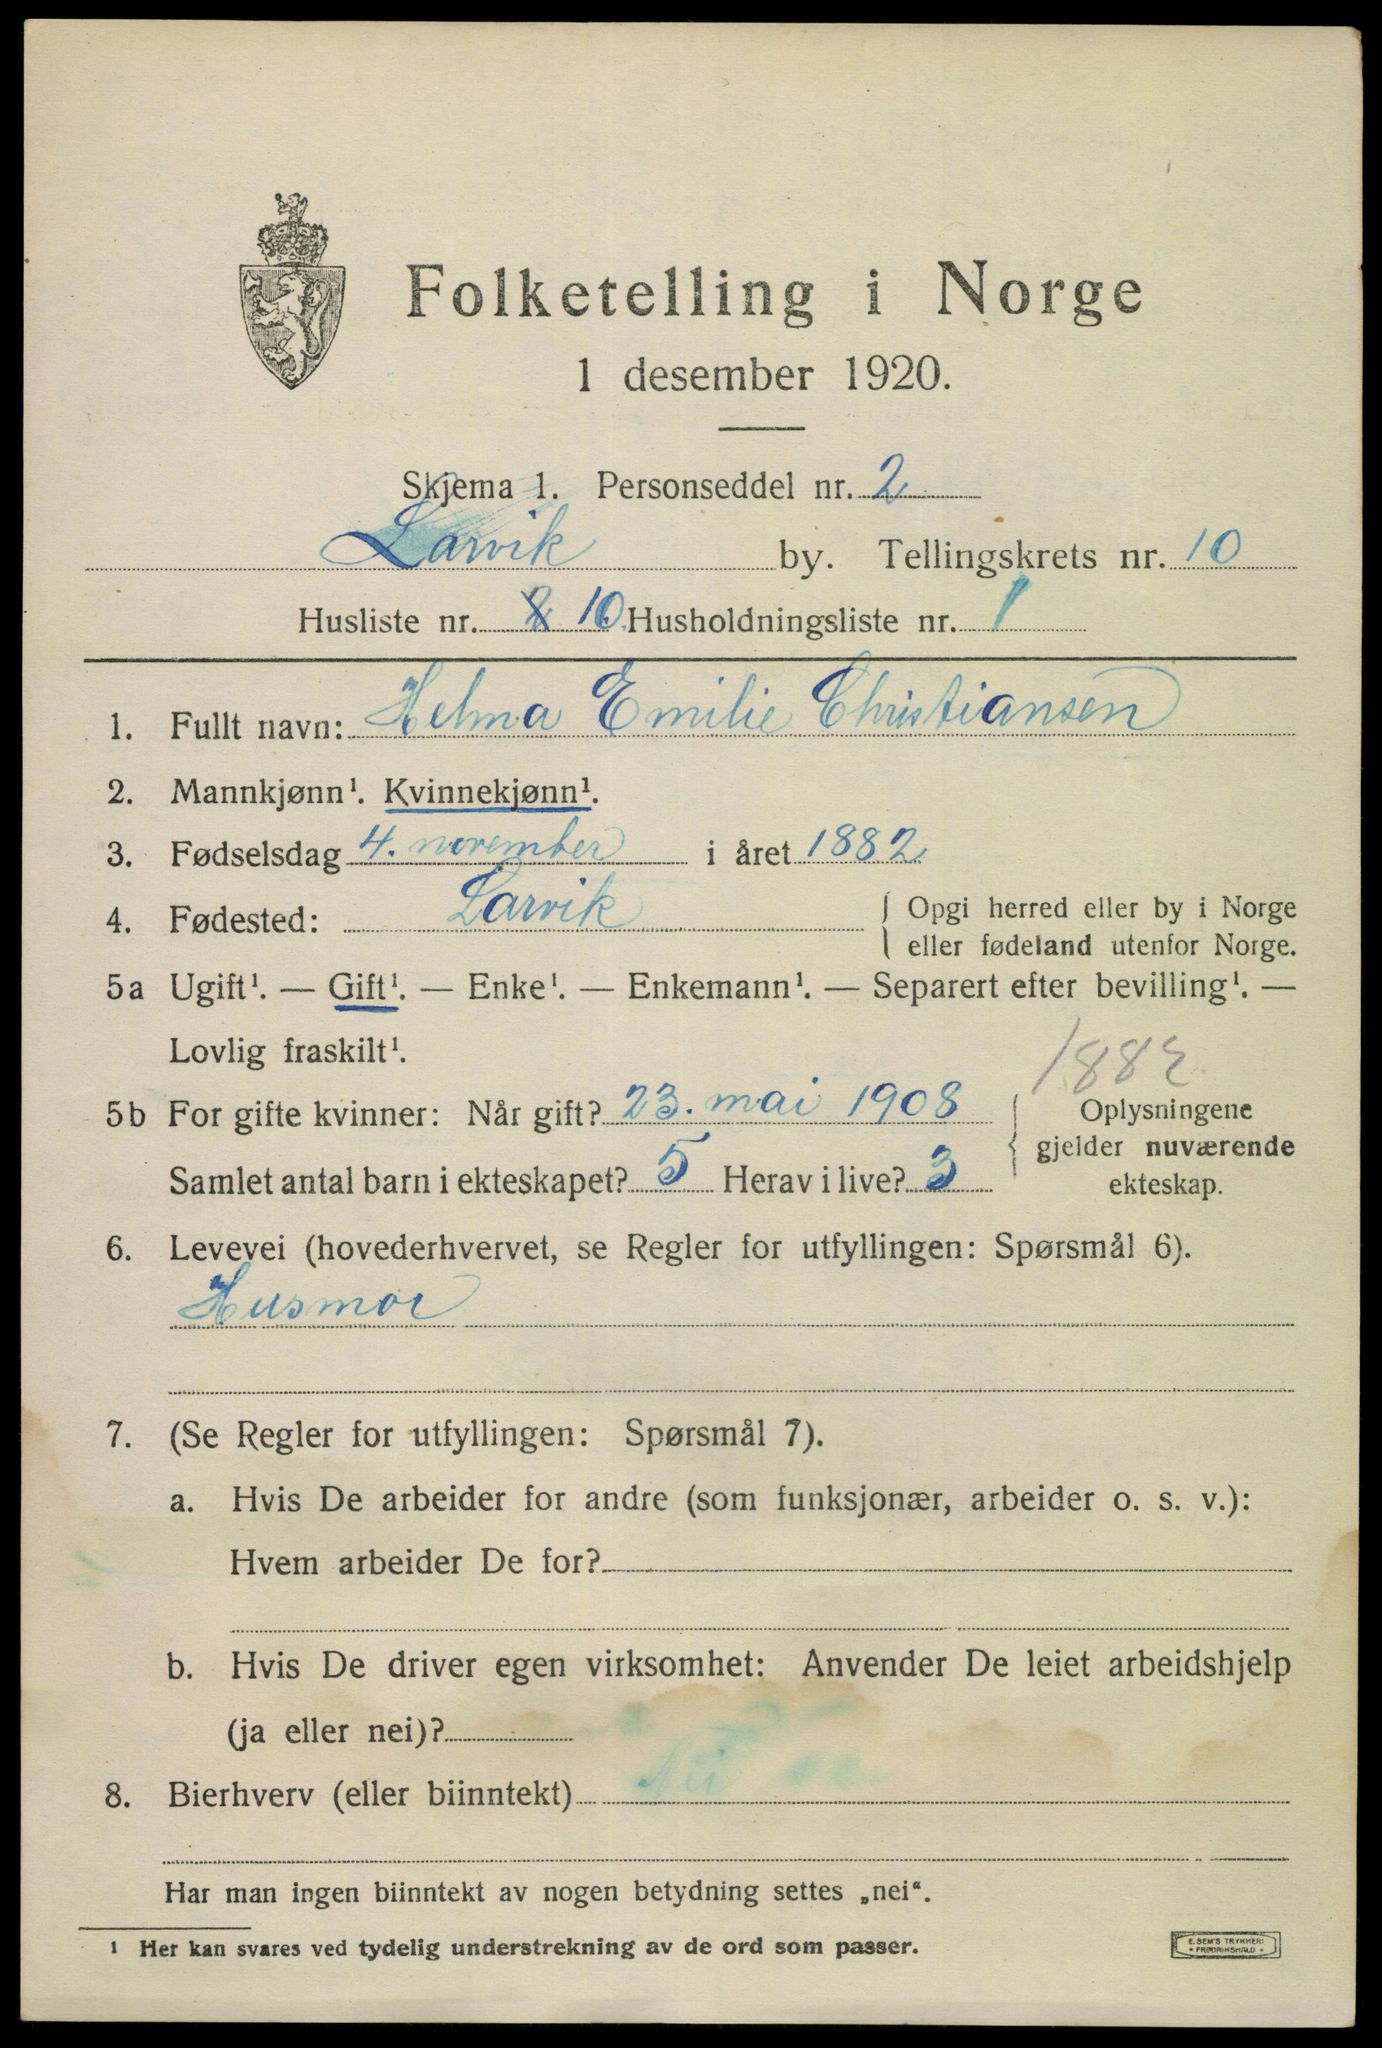 Folketelling i Norge
1 desember 1920.
Skjema 1. Personseddel nr. 2
Larvik by. Tellingskrets nr. 10
Husliste nr. 2 10. Husholdningsliste nr. 1
1. Fullt navn: Helma Emilie Christiansen
2. Mannkjønn¹. Kvinnekjønn¹.
3. Fødselsdag 4. november i året 1882
4. Fødested: Larvik { Opgi herred eller by i Norge
eller fødeland utenfor Norge.
5a Ugift¹. — Gift¹. — Enke¹. — Enkemann¹. — Separert efter bevilling¹. —
Lovlig fraskilt¹.
1882
5b For gifte kvinner: Når gift? 23. mai 1908 Oplysningene
gjelder nuværende
Samlet antal barn i ekteskapet? 5 Herav i live? 3 ekteskap.
6. Levevei (hovederhvervet, se Regler for utfyllingen: Spørsmål 6).
Husmor
7. (Se Regler for utfyllingen: Spørsmål 7).
a. Hvis De arbeider for andre (som funksjonær, arbeider o. s. v.):
Hvem arbeider De for?
b. Hvis De driver egen virksomhet: Anvender De leiet arbeidshjelp
(ja eller nei)?
8. Bierhverv (eller biinntekt) Nei
Har man ingen biinntekt av nogen betydning settes „nei“.
¹ Her kan svares ved tydelig understrekning av de ord som passer.
E. SEM'S TRYKKERI
• FREDRIKSHALD •